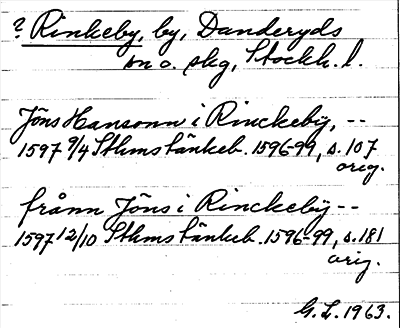 ? Rinkeby, by, Danderyds
sn o. skg, Stockh. l.
Jöns Hansonn i Rinckebÿ, --
1597 9/4 Sthms tänkeb. 1596-99, s. 107
orig.
frånn Jöns i Rinckebÿ --
1597 12/10 Sthms tänkeb. 1596-99, s. 181
orig.
G. L. 1963.